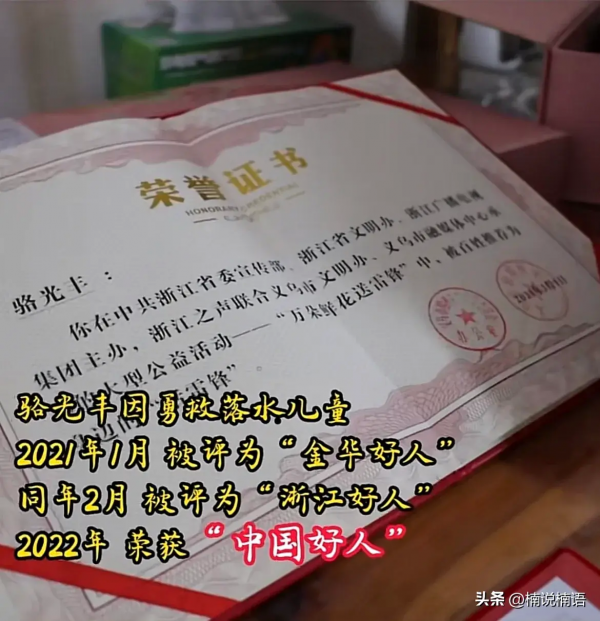 荣誉证书
HONORARY CREDENTIAL
骆光丰：
你在中共浙江省委宣传部、浙江省文明办、浙江广播电视
集团主办，浙江之声联合义乌市文明办、义乌市融媒体中心承
大型公益活动——“万朵鲜花送雷锋”中，被百姓推荐为
雷锋”
骆光丰因勇救落水儿童
2021年1月 被评为“金华好人”
同年2月 被评为“浙江好人”
2022年 荣获“中国好人”
头条 @楠说楠语